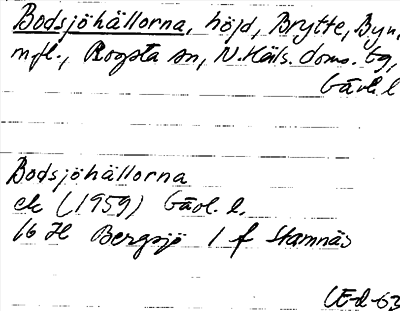 Bodsjöhällorna, höjd, Brytte, Byn,
m fl., Rogsta sn, N. Häls. doms. tg,
Gävl. l
Bodsjöhällorna
ek (1959) Gävl. l.
16 H Bergsjö 1 f Stamnäs